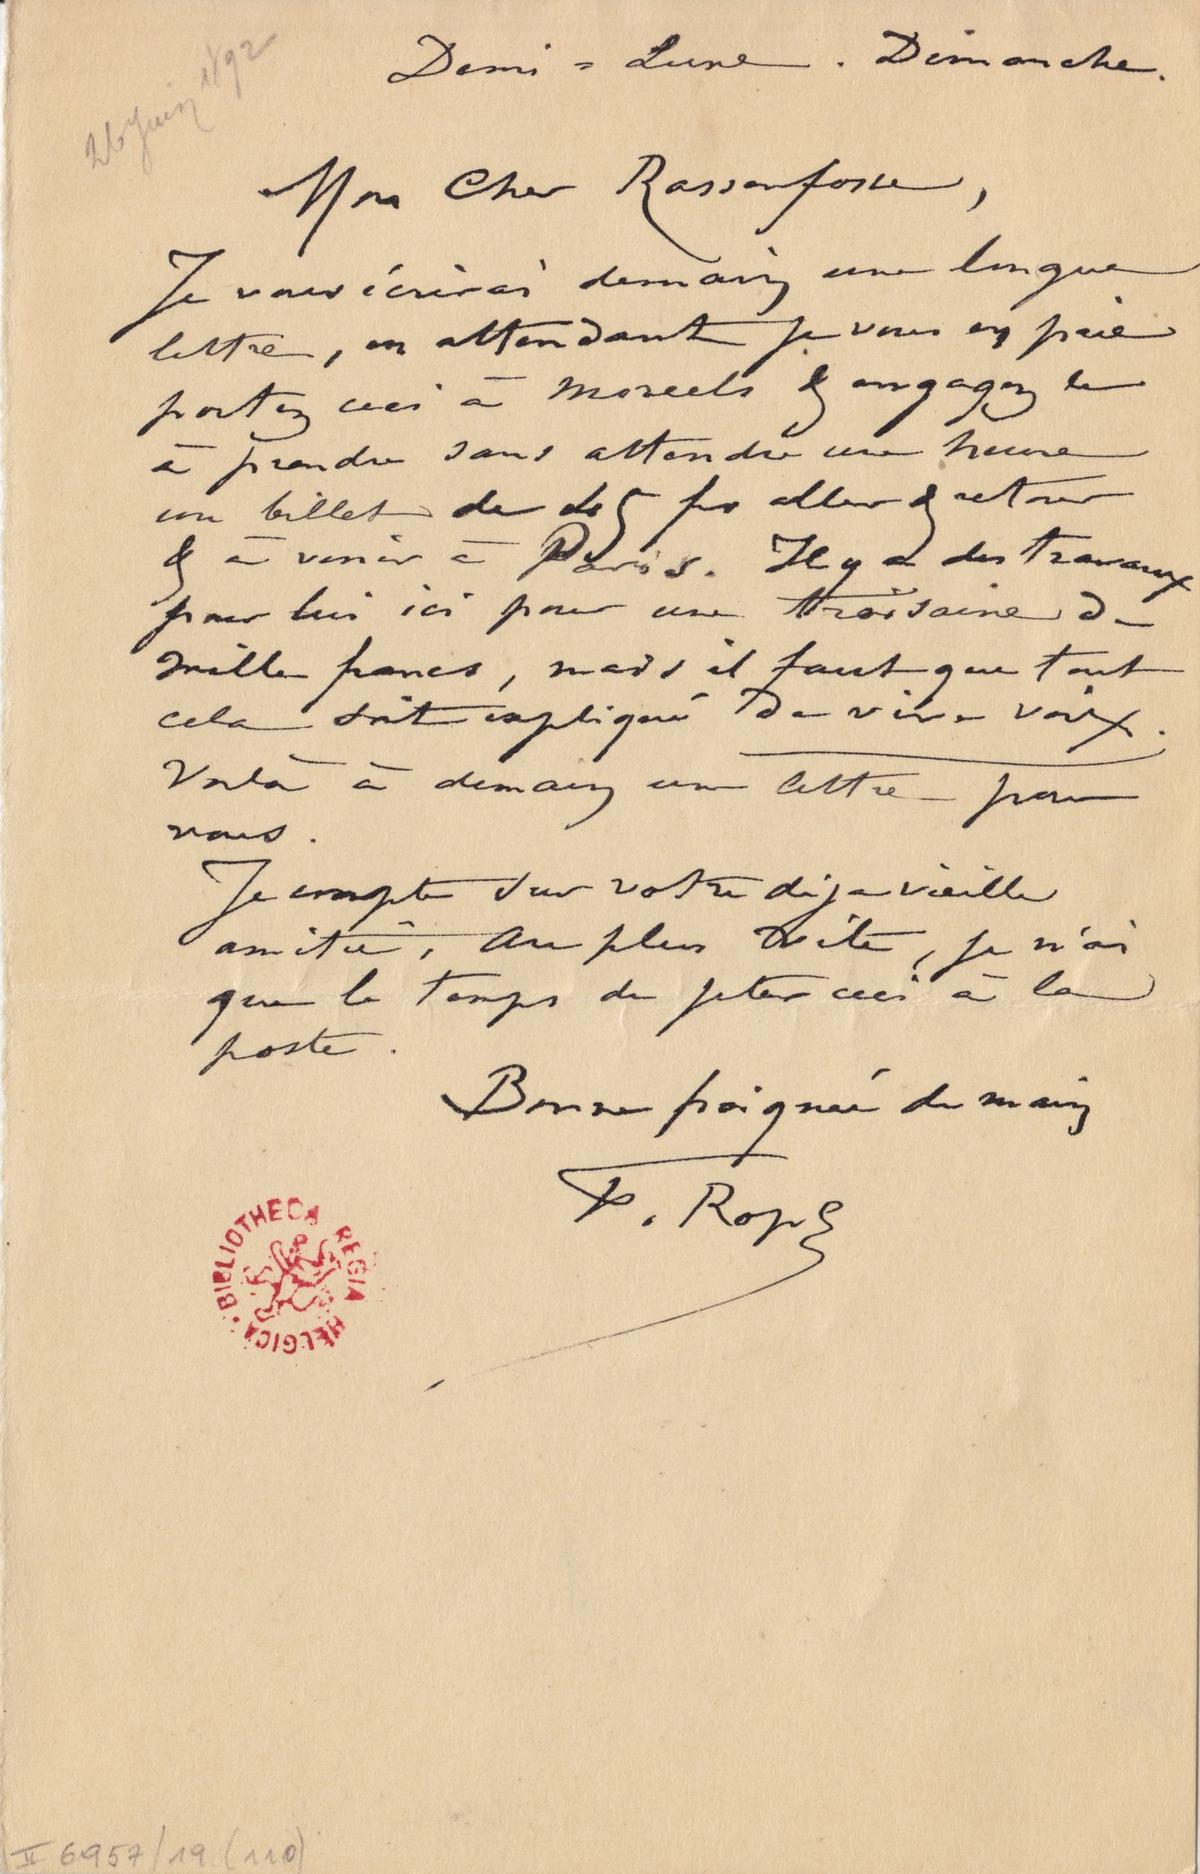 26 Juin 1892
Demi = Lune. Dimanche.
Mon Cher Rassenfosse,
Je vous écrirai demain une longue
lettre, en attendant je vous en prie
portez ceci à & engagez le
à prendre sans attendre une heure
un billet de frs aller & retour
& à venir à Paris. Il y a des travaux
pour lui ici pour une de
mille francs, mais il faut que tout
cela soit expliqué de vive voix.
Voilà à demain une lettre pour
vous.
Je compte sur votre déja vieille
amitié. Au plus vite, je n'ai
que le temps de jeter ceci à la
poste.
Bonne poignée de main
F. Rops
BIBLIOTHECA REGIA BELGICA
II 6957/19 (110)